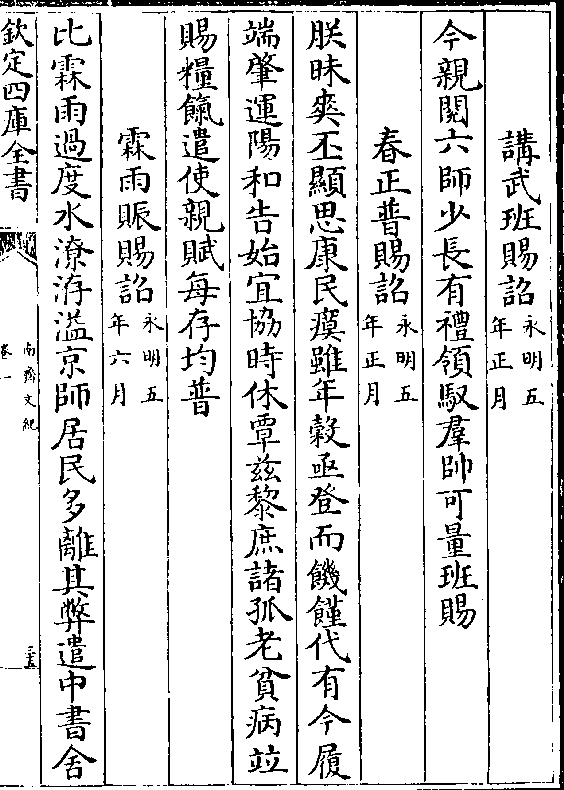 講武班賜詔永明五年正月
今親閱六師少長有禮領馭羣帥可量班賜
春正普賜詔永明五年正月
朕昧爽丕顯思康民瘼雖年穀亟登而饑饉代有今履
端肇運陽和告始宜協時休覃兹黎庶諸孤老貧病竝
賜糧餼遣使親賦每存均普
霖雨賑賜詔永明五年六月
比霖雨過度水潦洊溢京師居民多離其弊遣中書舍
欽定四庫全書
南齊文紀
卷一
三五